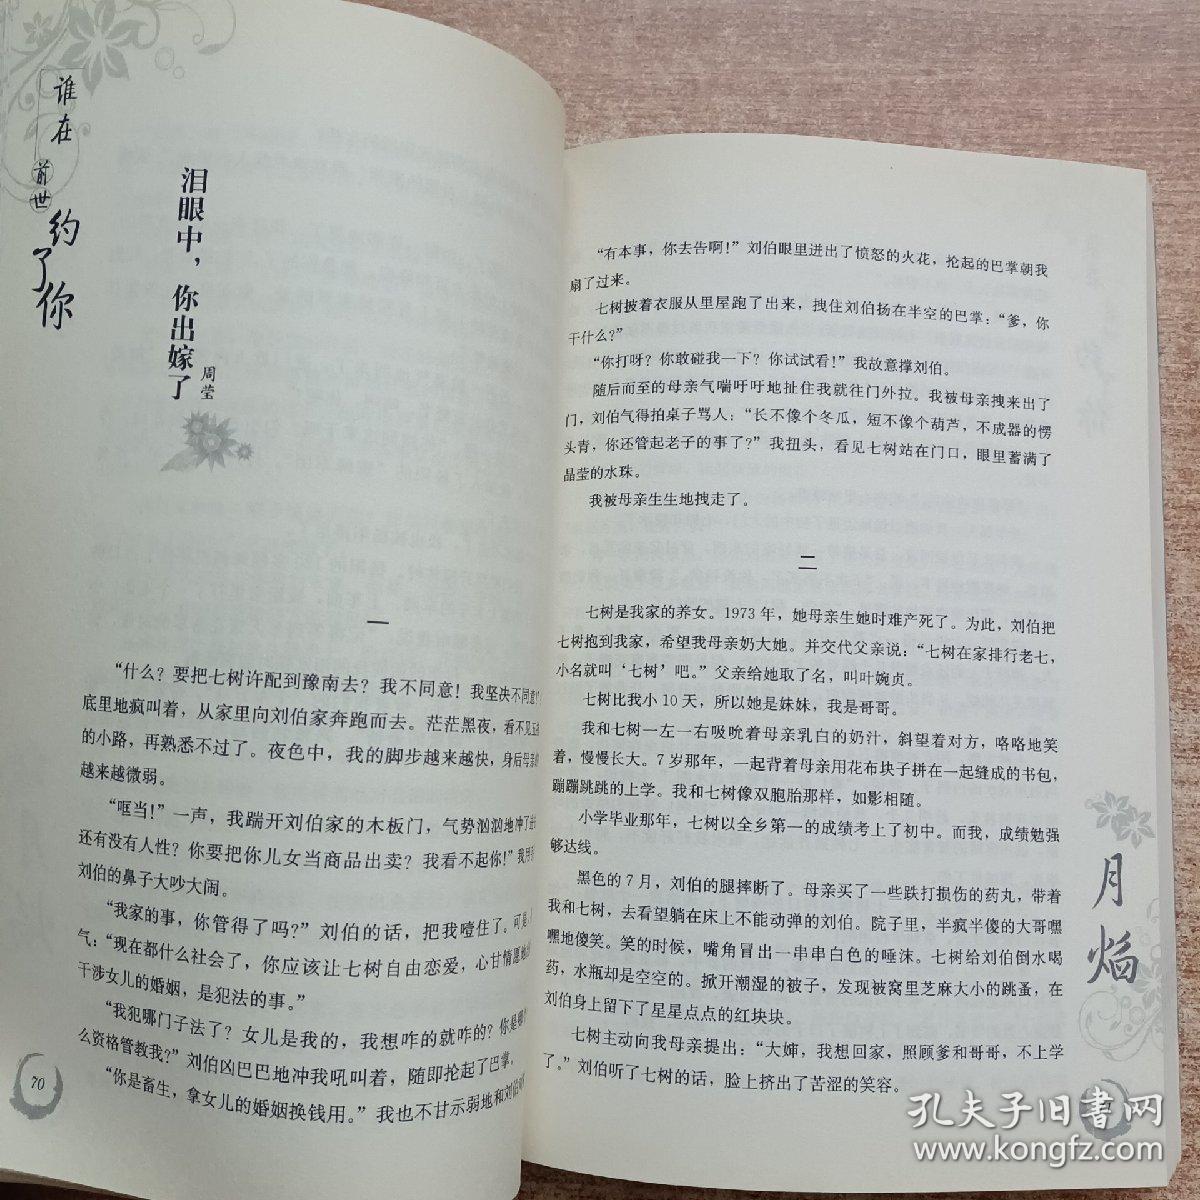 谁在前世约了你
泪眼中，你出嫁了
周莹
一
“什么？要把七树许配到豫南去？我不同意！我坚决不同意！”
底里地疯叫着，从家里向刘伯家奔跑而去。茫茫黑夜，看不见五
的小路，再熟悉不过了。夜色中，我的脚步越来越快，身后母亲的
越来越微弱。
“哐当！”一声，我踹开刘伯家的木板门，气势汹汹地冲了进
还有没有人性？你要把你儿女当商品出卖？我看不起你！”我用
刘伯的鼻子大吵大闹。
“我家的事，你管得了吗？”刘伯的话，把我噎住了。可是
气：“现在都什么社会了，你应该让七树自由恋爱，心甘情愿
干涉女儿的婚姻，是犯法的事。”
“我犯哪门子法了？女儿是我的，我想咋的就咋的？你是哪
么资格管教我？”刘伯凶巴巴地冲我吼叫着，随即抡起了巴掌，
“你是畜生，拿女儿的婚姻换钱用。”我也不甘示弱地和刘伯
70
“有本事，你去告啊！”刘伯眼里迸出了愤怒的火花，抡起的巴掌朝我
扇了过来。
七树披着衣服从里屋跑了出来，拽住刘伯扬在半空的巴掌：“爹，你
干什么？”
“你打呀？你敢碰我一下？你试试看！”我故意撑刘伯。
随后而至的母亲气喘吁吁地扯住我就往门外拉。我被母亲拽来出了
门，刘伯气得拍桌子骂人：“长不像个冬瓜，短不像个葫芦，不成器的愣
头青，你还管起老子的事了？”我扭头，看见七树站在门口，眼里蓄满了
晶莹的水珠。
我被母亲生生地拽走了。
二
七树是我家的养女。1973年，她母亲生她时难产死了。为此，刘伯把
七树抱到我家，希望我母亲奶大她。并交代父亲说：“七树在家排行老七，
小名就叫‘七树’吧。”父亲给她取了名，叫叶婉贞。
七树比我小10天，所以她是妹妹，我是哥哥。
我和七树一左一右吸吮着母亲乳白的奶汁，斜望着对方，咯咯地笑
着，慢慢长大。7岁那年，一起背着母亲用花布块子拼在一起缝成的书包，
蹦蹦跳跳的上学。我和七树像双胞胎那样，如影相随。
小学毕业那年，七树以全乡第一的成绩考上了初中。而我，成绩勉强
够达线。
黑色的7月，刘伯的腿摔断了。母亲买了一些跌打损伤的药丸，带着
我和七树，去看望躺在床上不能动弹的刘伯。院子里，半疯半傻的大哥嘿
嘿地傻笑。笑的时候，嘴角冒出一串串白色的唾沫。七树给刘伯倒水喝
药，水瓶却是空空的。掀开潮湿的被子，发现被窝里芝麻大小的跳蚤，在
刘伯身上留下了星星点点的红块块。
七树主动向我母亲提出：“大婶，我想回家，照顾爹和哥哥，不上学
了。”刘伯听了七树的话，脸上挤出了苦涩的笑容。
月焰
孔夫子旧书网
www.kongfz.com